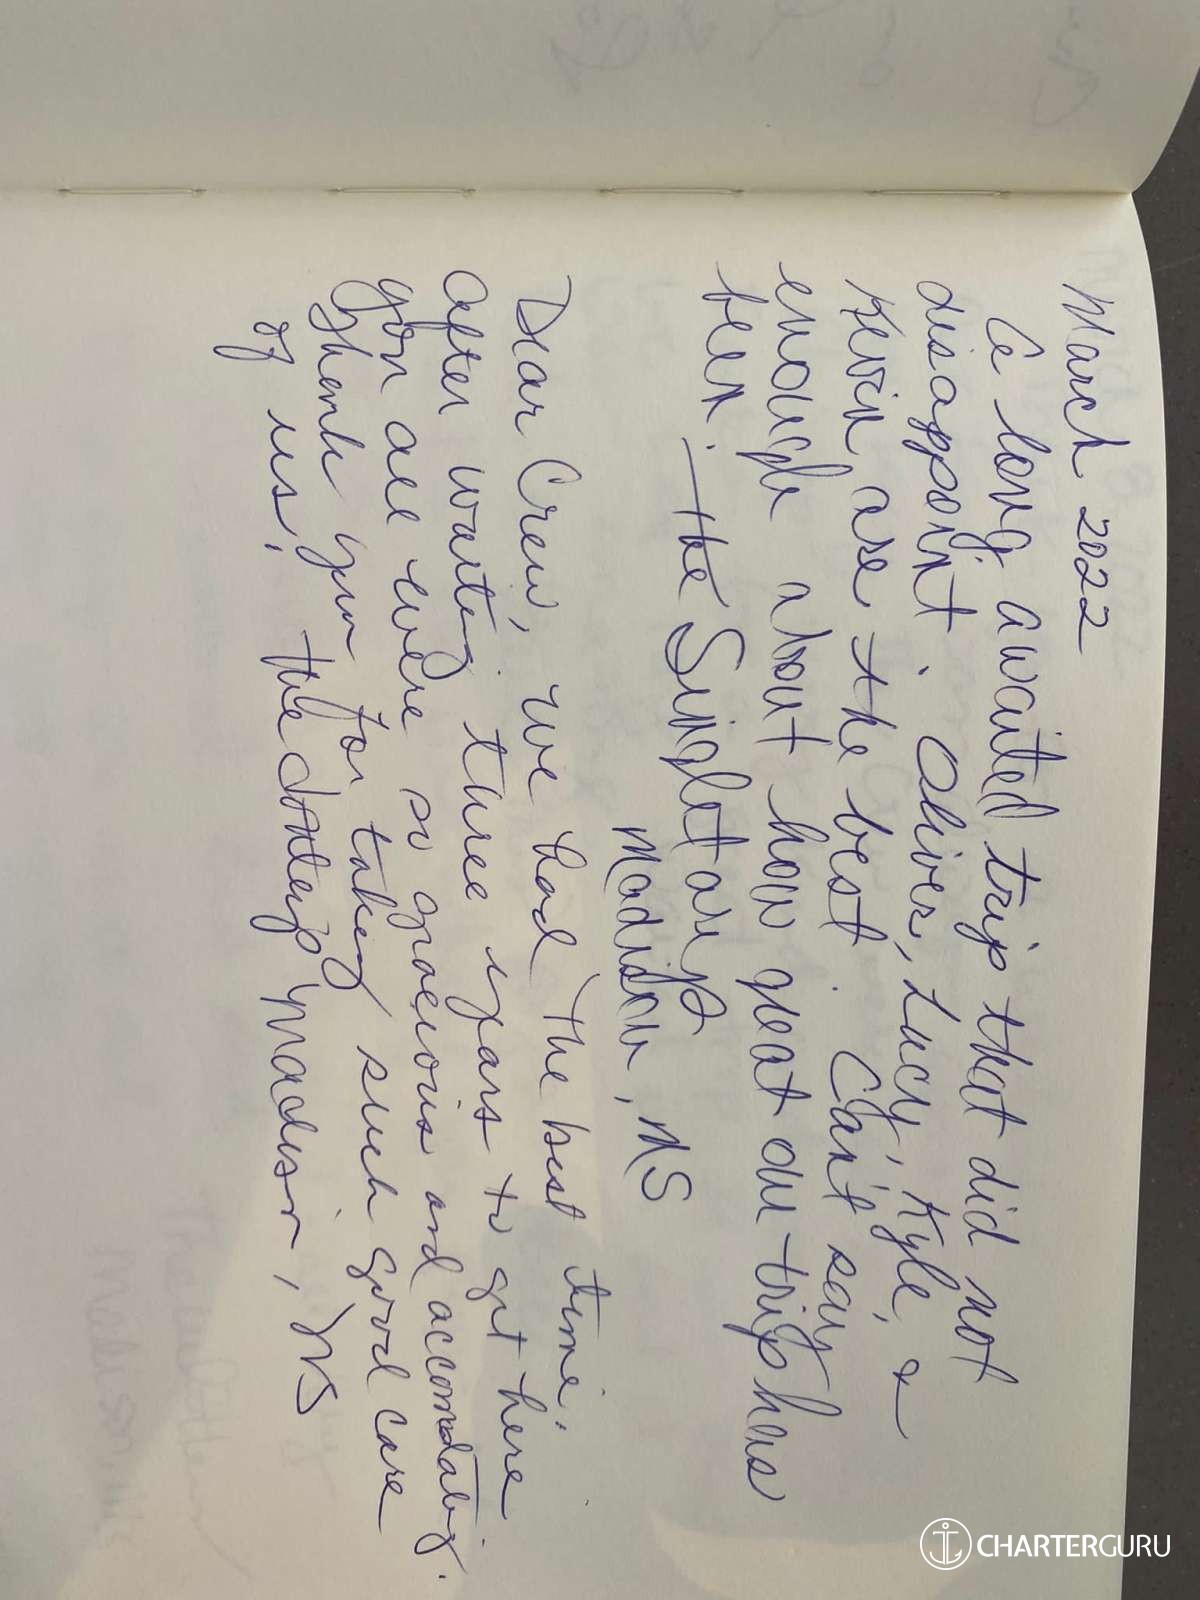 March 2022
A long awaited trip that did not
disappoint. Oliver, Lucy, Kyle, &
Kevin are the best. Can't say
enough about how great our trip has
been. — the Singletary
Madison, MS
Dear Crew, we had the best time.
After waiting three years to get here
you all were so gracious and accomodating.
Thank you for taking such good care
of us! The Madison, MS
CHARTERGURU